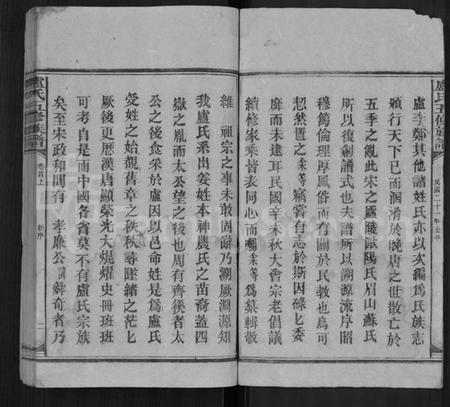 盧氏五修族譜
民國二十一年壬申
盧李鄭其他諸姓氏亦以次編爲氏族志
頒行天下已而涵淆於晚唐之世散亡於
五季之亂此宋之廬陵歐陽氏眉山蘇氏
所以復創譜式也夫譜所以溯源流序昭
穆篤倫理厚風俗而有關於民敎也爲可
恝然置之釆等竊嘗有志於斯因碌匕委
靡而未遑耳民國辛未秋大會宗老倡議
續修家乘皆表同心而囑釆等爲纂輯敬
維 祖宗之事未敢固辭乃溯厥淵源知
我盧氏系出姜姓本神農氏之苗裔蓋四
嶽之胤而太公望之後也周有齊後者太
公之後食釆於盧因以邑命姓是爲盧氏
受姓之始覩舊章之秩秩尋墜緒之茫匕
厥後更歷漢唐顯榮光大焜燿史冊班班
可考自是而中國各省莫不有盧氏宗族
矣至宋政和間有 孝廉公諱舜奇者乃
盧氏五修族譜
卷首上
新序
二